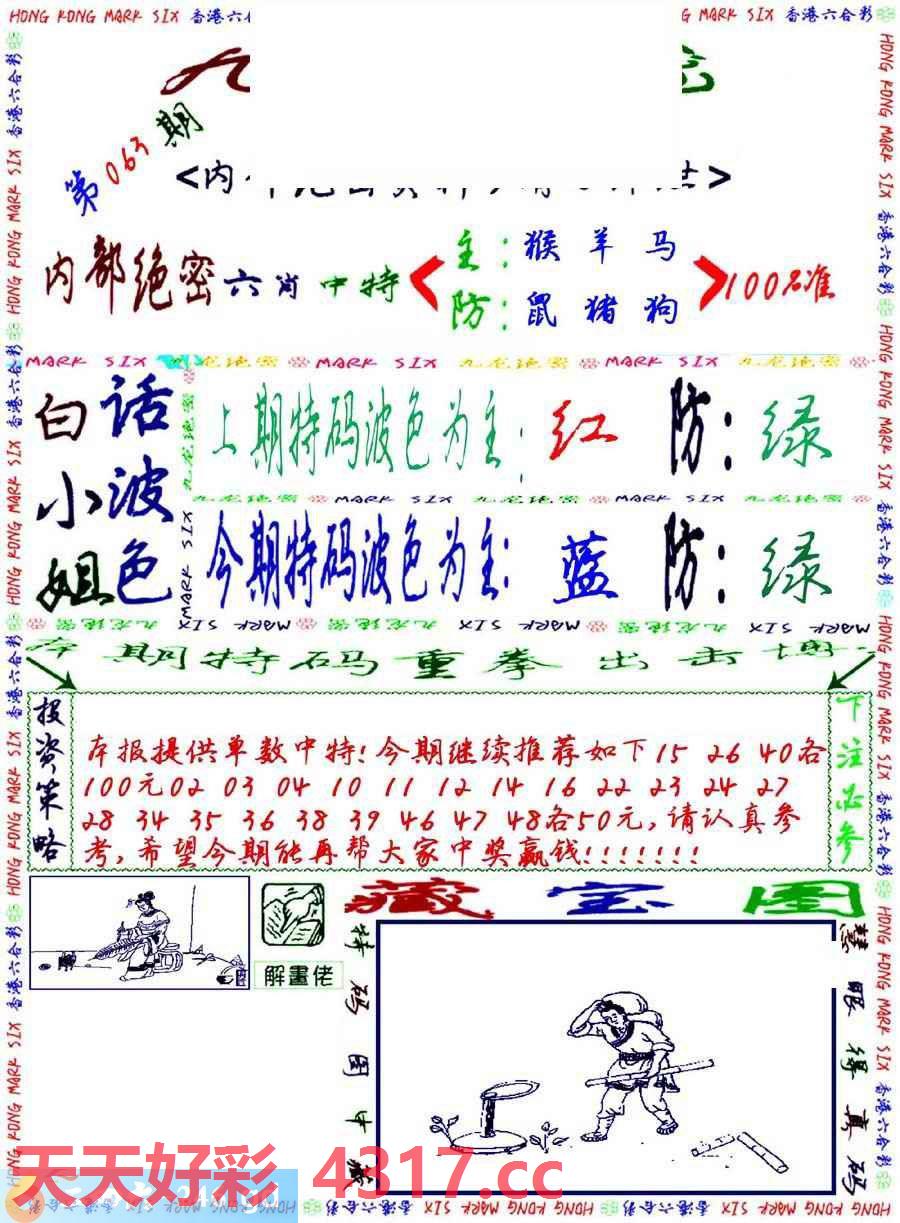 HONG KONG MARK SIX 香港六合彩
第063期
内部绝密六肖中特
主:猴羊马
防:鼠猪狗
100%准
MARK SIX 九龙绝密 MARK SIX 九龙绝密 MARK SIX 九龙绝密
白话波色
小姐
上期特码波色为主:红 防:绿
九龙绝密 MARK SIX 九龙绝密 MARK SIX
今期特码波色为主:蓝 防:绿
本期特码重拳出击
投资策略
本报提供单数中特!今期继续推荐如下15 26 40各
100元02 03 04 10 11 12 14 16 22 23 24 27
28 34 35 36 38 39 46 47 48各50元,请认真参
考,希望今期能再帮大家中奖赢钱!!!!!!!
下注必参
藏宝图
解畫佬
特码图中
慧眼得真码
天天好彩 4317.cc